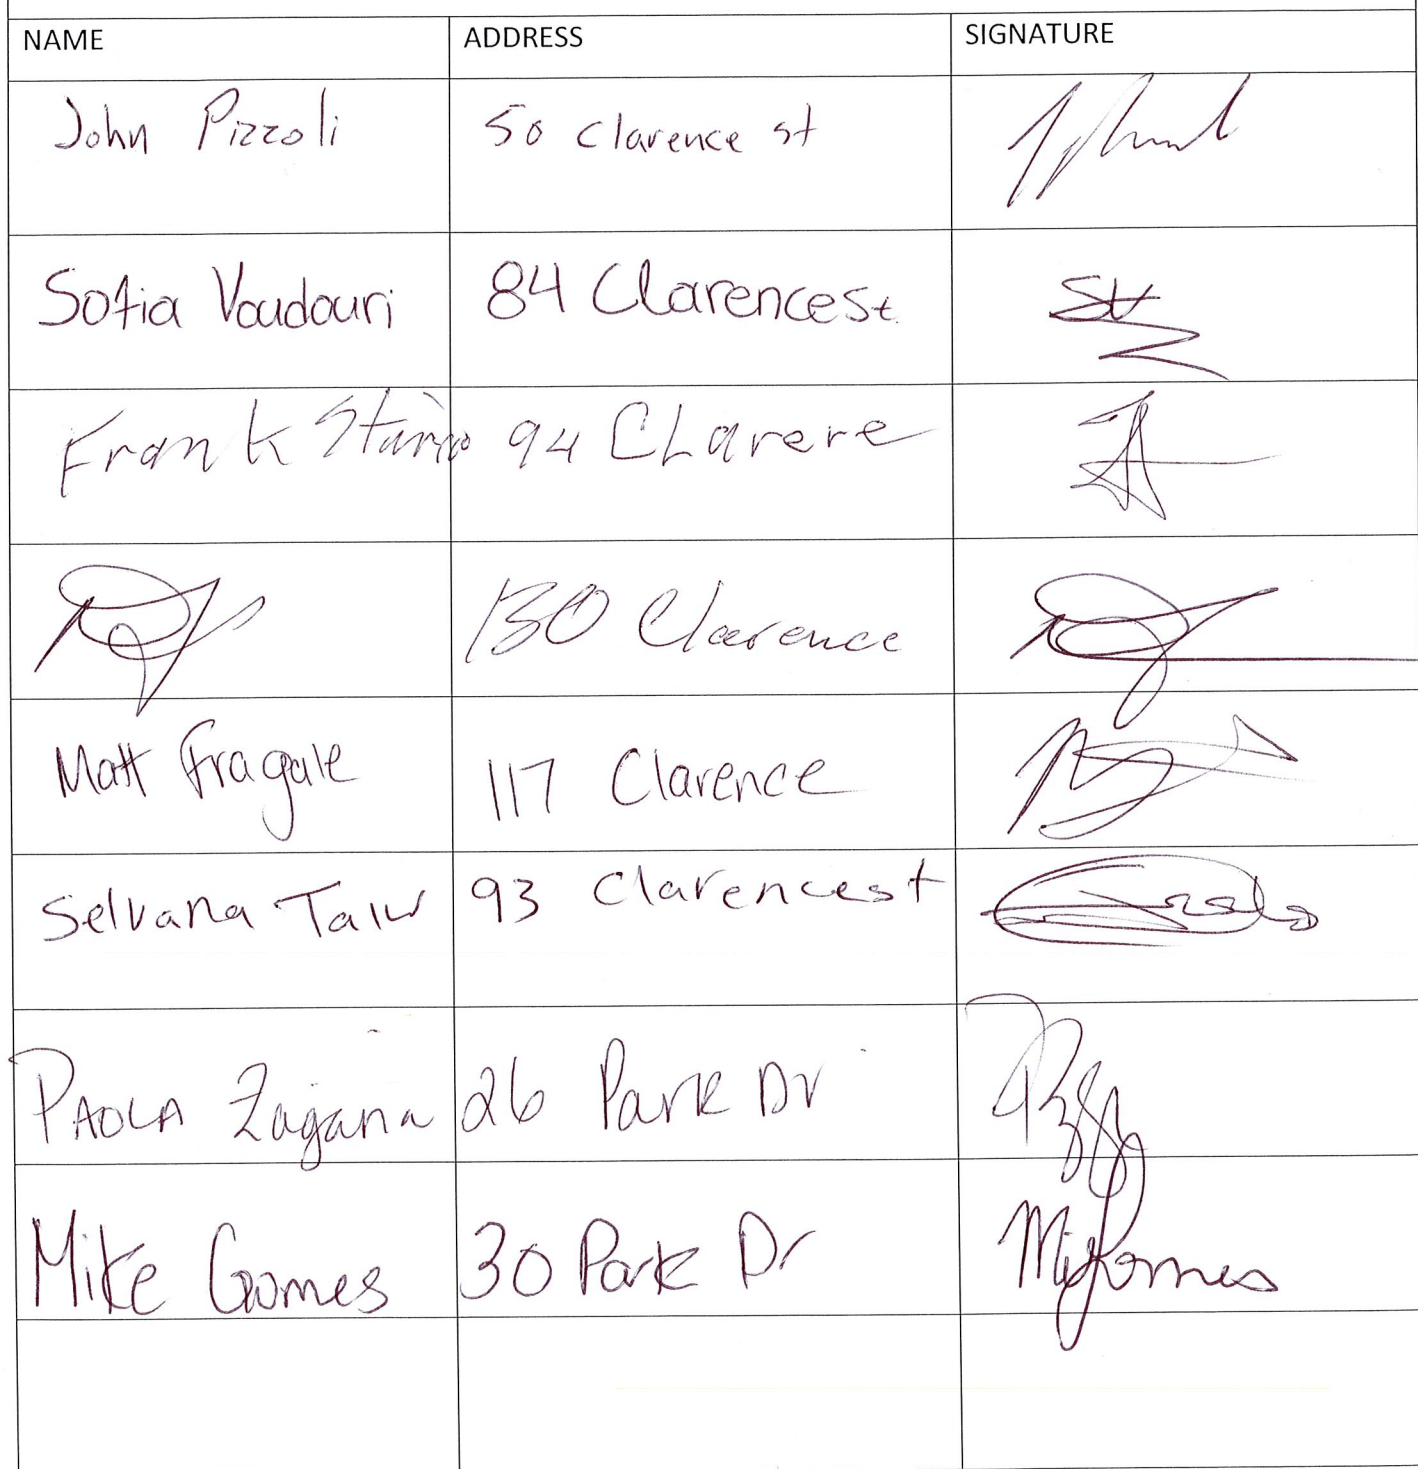 NAME ADDRESS SIGNATURE
John Pizzoli 50 Clarence st
Sofia Voudouri 84 Clarence St
Frank 94 CLarere
130 Clarence
Matt Fragale 117 Clarence
Selvana 93 Clarence st
PAOLA Zagana 26 Park Dr
Mike Gomes 30 Park Dr